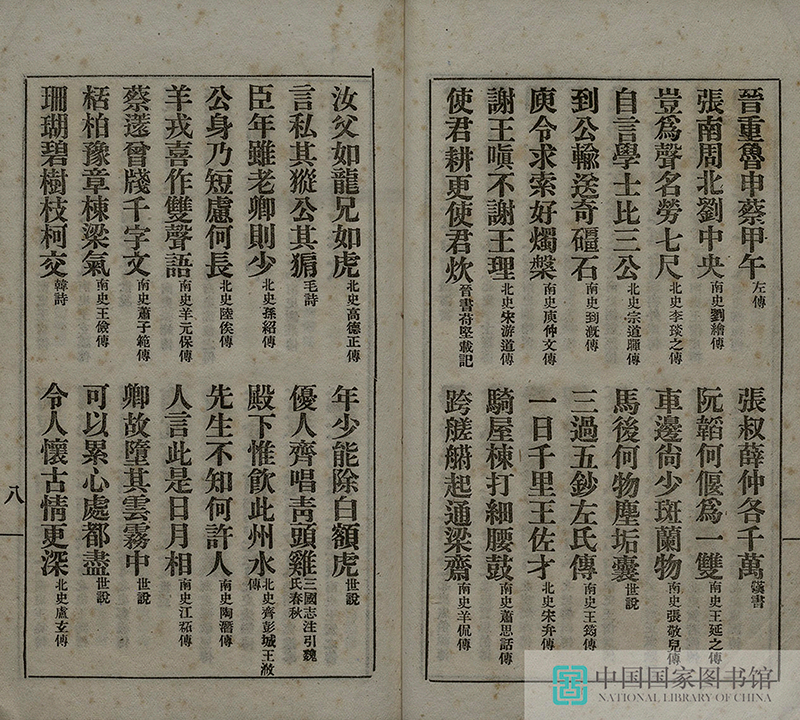 晉重魯申蔡甲午 左傳 張叔薛仲各千萬 漢書
張南周北劉中央 南史劉繪傳 阮韜何偃爲一雙 南史王延之傳
豈爲聲名勞七尺 北史李琰之傳 車邊尙少斑蘭物 南史張敬兒傳
自言學士比三公 北史宗道暉傳 馬後何物塵垢囊 世說
到公輸送奇礓石 南史到溉傳 三過五鈔左氏傳 南史王筠傳
庾令求索好燭槃 南史庾仲文傳 一日千里王佐才 北史宋弁傳
謝王嗔不謝王理 北史宋游道傳 騎屋棟打細腰鼓 南史蕭思話傳
使君耕更使君炊 晉書苻堅載記 跨艖䑠起通梁齋 南史羊侃傳
汝父如龍兄如虎 北史高德正傳 年少能除白額虎 世說
言私其豵公其豜 毛詩 優人齊唱靑頭雞 三國志注引魏氏春秋
臣年雖老卿則少 北史孫紹傳 殿下惟飮此州水 北史齊彭城王浟傳
公身乃短慮何長 北史陸俟傳 先生不知何許人 南史陶潛傳
羊戎喜作雙聲語 南史羊元保傳 人言此是日月相 南史江祏傳
蔡薳曾牋千字文 南史蕭子範傳 卿故墮其雲霧中 世說
栝柏豫章棟梁氣 南史王儉傳 可以累心處都盡 世說
珊瑚碧樹枝柯交 韓詩 令人懷古情更深 北史盧玄傳
八
中国国家图书馆
NATIONAL LIBRARY OF CHINA